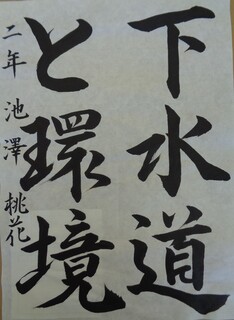 下水道
と環境
二年 池澤 桃花